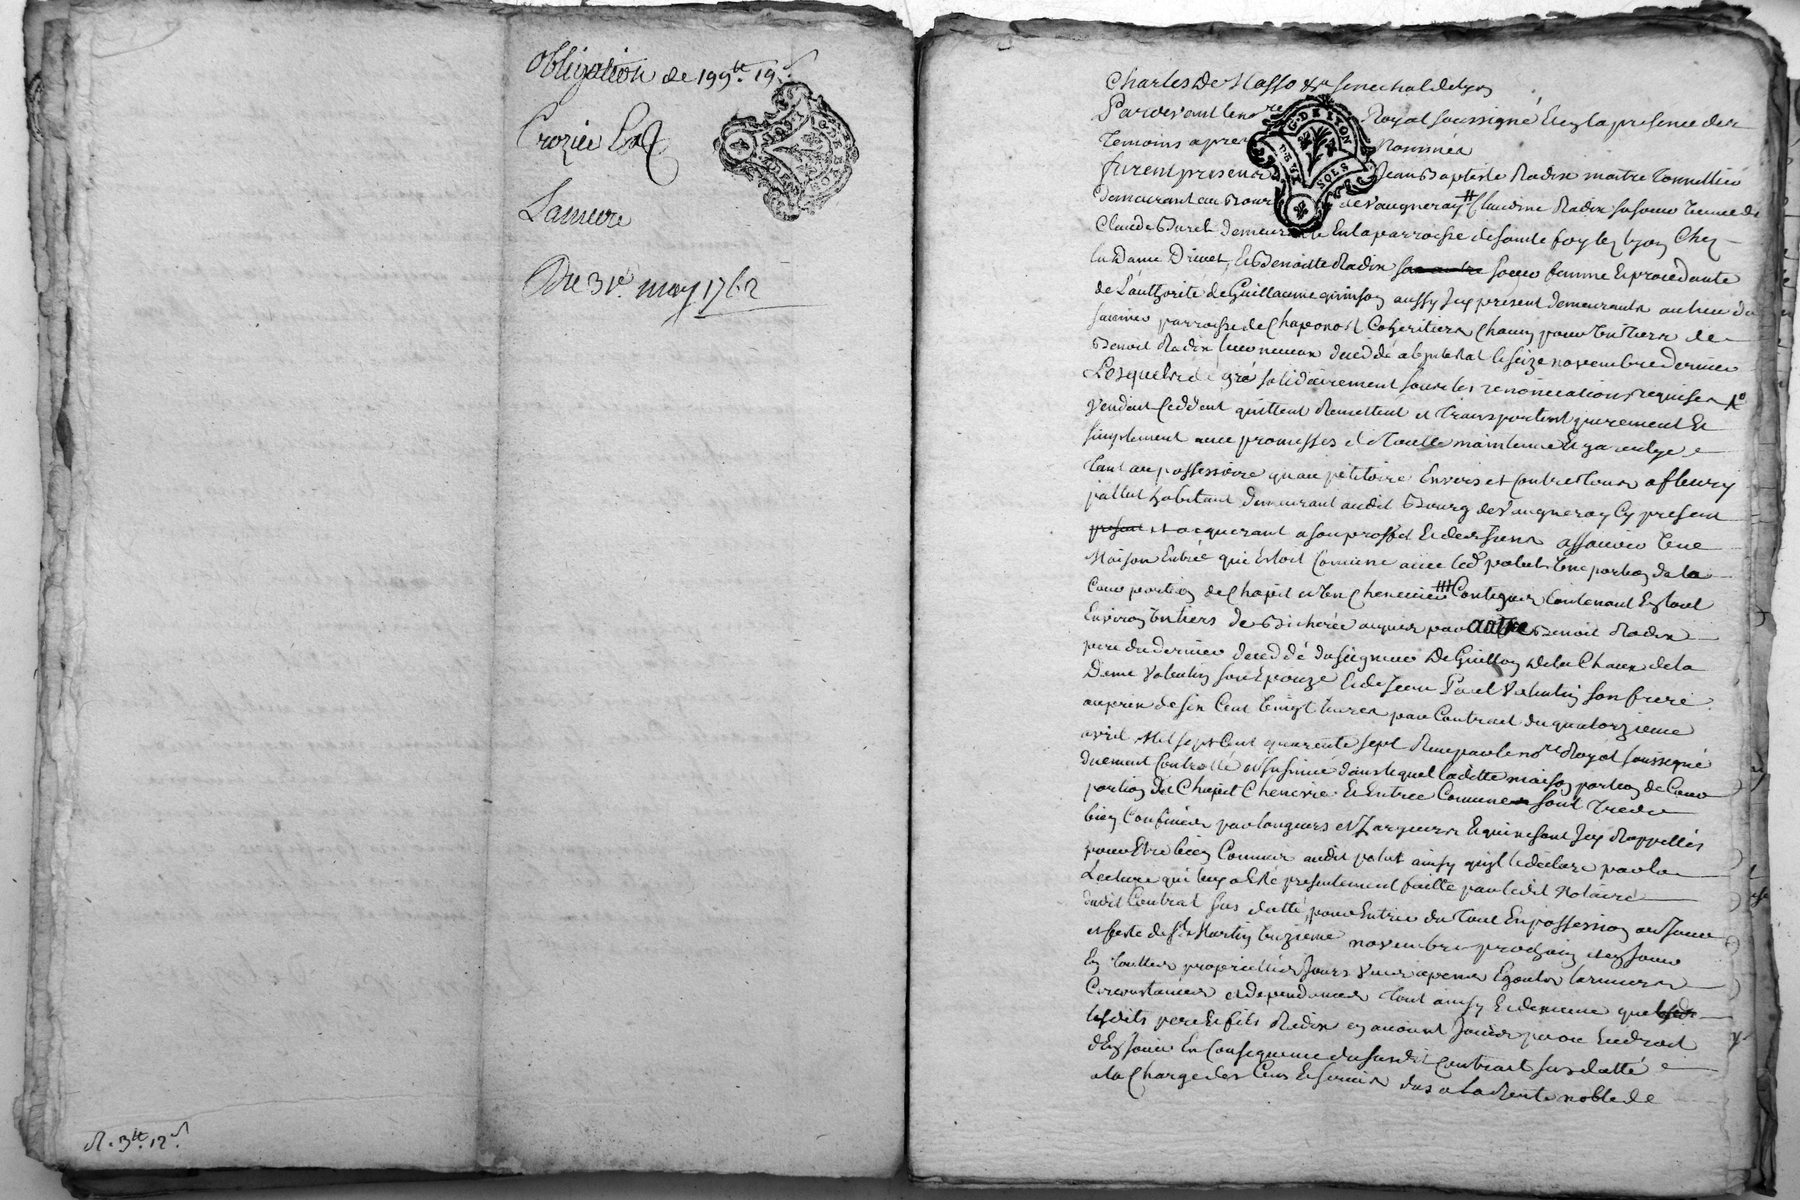 obligation de 199.lt 19.s
Crozier
Lameure
Du 31e. may 1762
R. 3lt. 12s
G. DE LYON
SOLS
Charles De Masso &a senechal de Lyon
Pardevant le no re Royal soussigné Et en la presence des
Temoins apres Nommés
furent presens Jean Baptiste Radix maitre Tonnellier
Demeurant au Bourg de Vaugneray # Claudine Radix sa soeur veuve de
Claude Buret demeurante En la parroisse de sainte foy les Lyon Chez
la Dame Drivet, Et Benoitte Radix son autre soeur femme Et procedante
de L'authorité de Guillaume aussy Icy present demeurants au lieu du
parroisse de Chaponost Coheritiers Chacun pour un Tiers de
Benoit Radix leur neveux decedé abintestat le seize novembre Dernier
Lesquels de gré solidairement sous les renonciations requises
Vendent Ceddent quittent Remettent et Transportent purement Et
simplement avec promesses de Toutte maintenue Et garentye
Tant au possessoire qu'au petitoire Envers et Contre Tous a fleury
pallut habitant demeurant audit Bourg de Vaugneray Cy present
present et acquerant a son proffit Et des siens assavoir Une
Maison Entrée qui Est Comune avec led. palut Une portion de la
Cour portion de Chapit et Un Cheneviere ### Contigues Contenant En Tout
Environ Un tiers de Bicherée acquis par autre Benoit Radix
pere du dernier decedé du seigneur De Guillon De la Chaux de la
Dame Valentin son Epouze Et de Jean Paul Valentin son frere
au prix de six Cent Vingt livres par Contract du quatorzieme
avril Mil sept Cent quarente sept Recu par le no re Royal soussigné
duement Controllé et Insinué dans lequel laditte maison portion de Cour
portion de Chapit Chenevre Et Entrée Comune sont Tres
bien Confinés par longueurs et Largueurs Et qui ne sont Icy Rappellés
pour Etre bien Connus audit palut ainsy qu'il le declare par la
Lecture qui luy a Eté presentement faitte par ledit Notaire
dudit Contrat sus datté, pour Entrer du Tout En possession au Jour
et feste de St. Martin onzieme novembre prochain et en Jouir
En Touttes proprietés Jours Vues
Circonstances et dependances Tout ainsy Et de meme que lesdits
lesdits pere Et fils Radix en avoient Jouis pu ou Eu droit
d'En Jouir En Consequence du susdit Contract sus datté
a la Charge des Cens Et servis dus a la Rente noble de